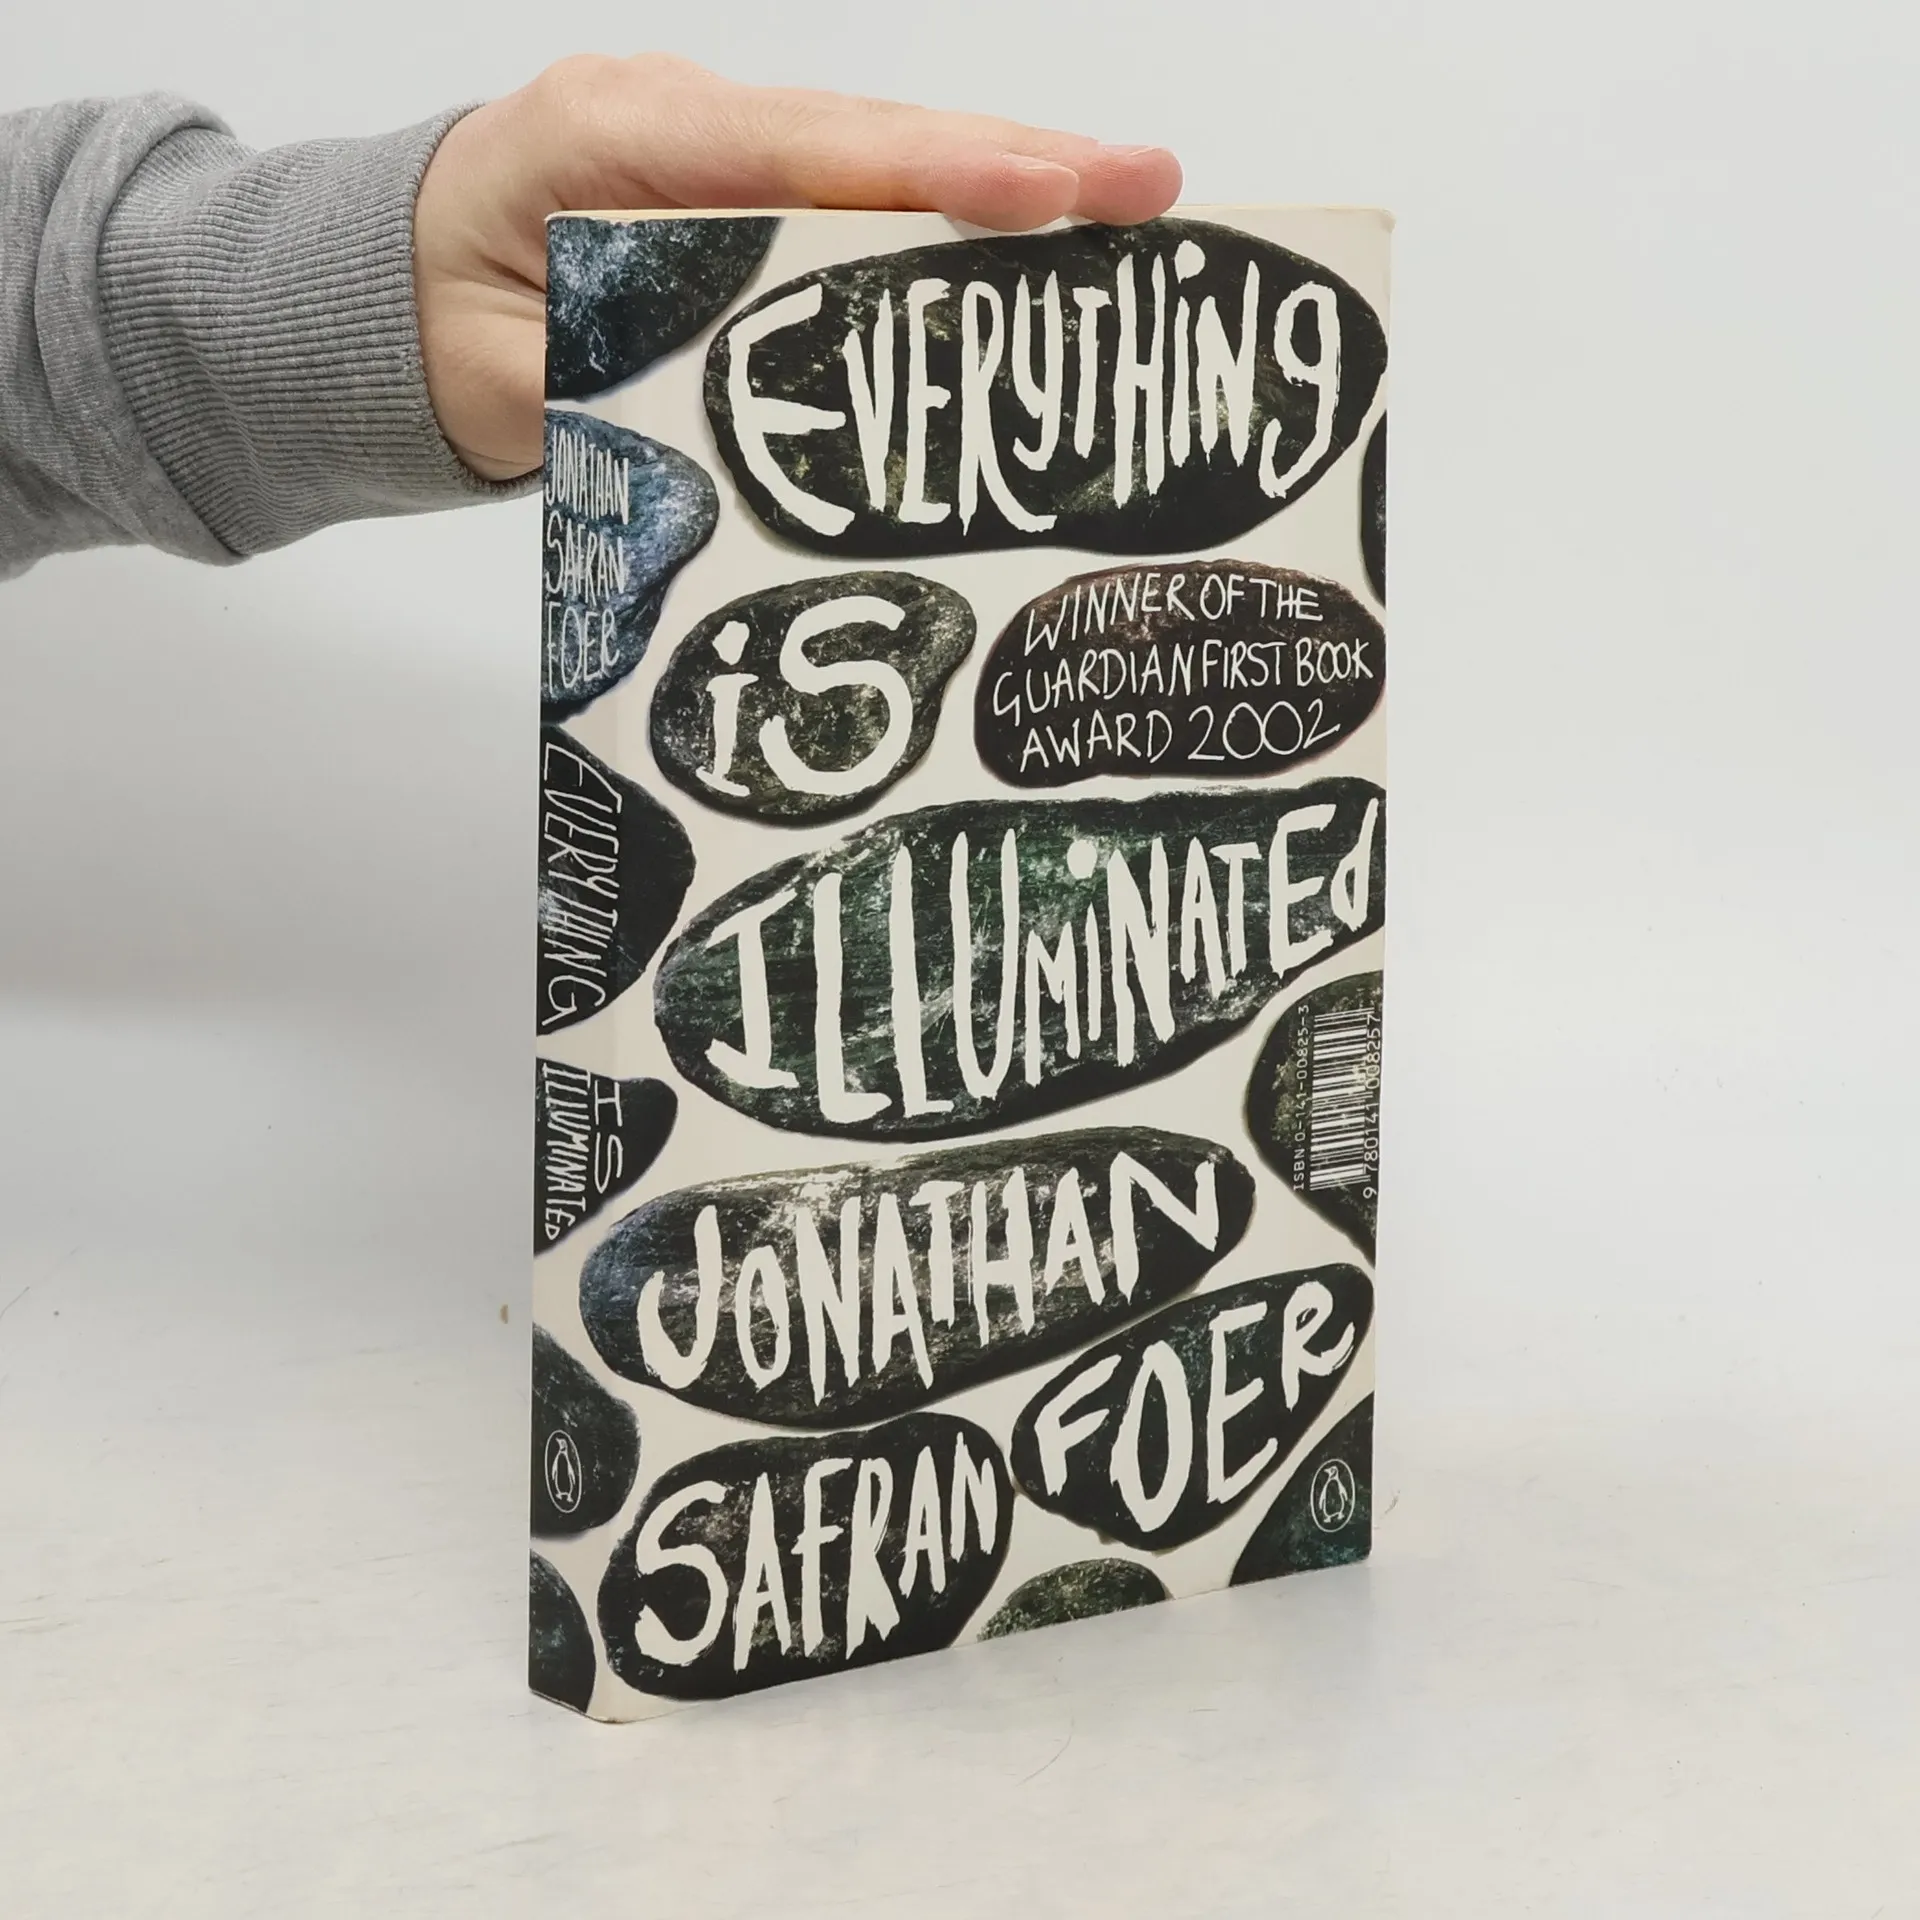 EVERYTHiNg
iS
WINNER OF THE
GUARDIAN FIRST BOOK
AWARD 2002
ILLUMiNATEd
JONATHAN
SAFRAN
FOER
JONATHAN
SAFRAN
FOER
EVERYTHING
IS
ILLUMINATED
ISBN 0-141-00825-3
9 780141 008257